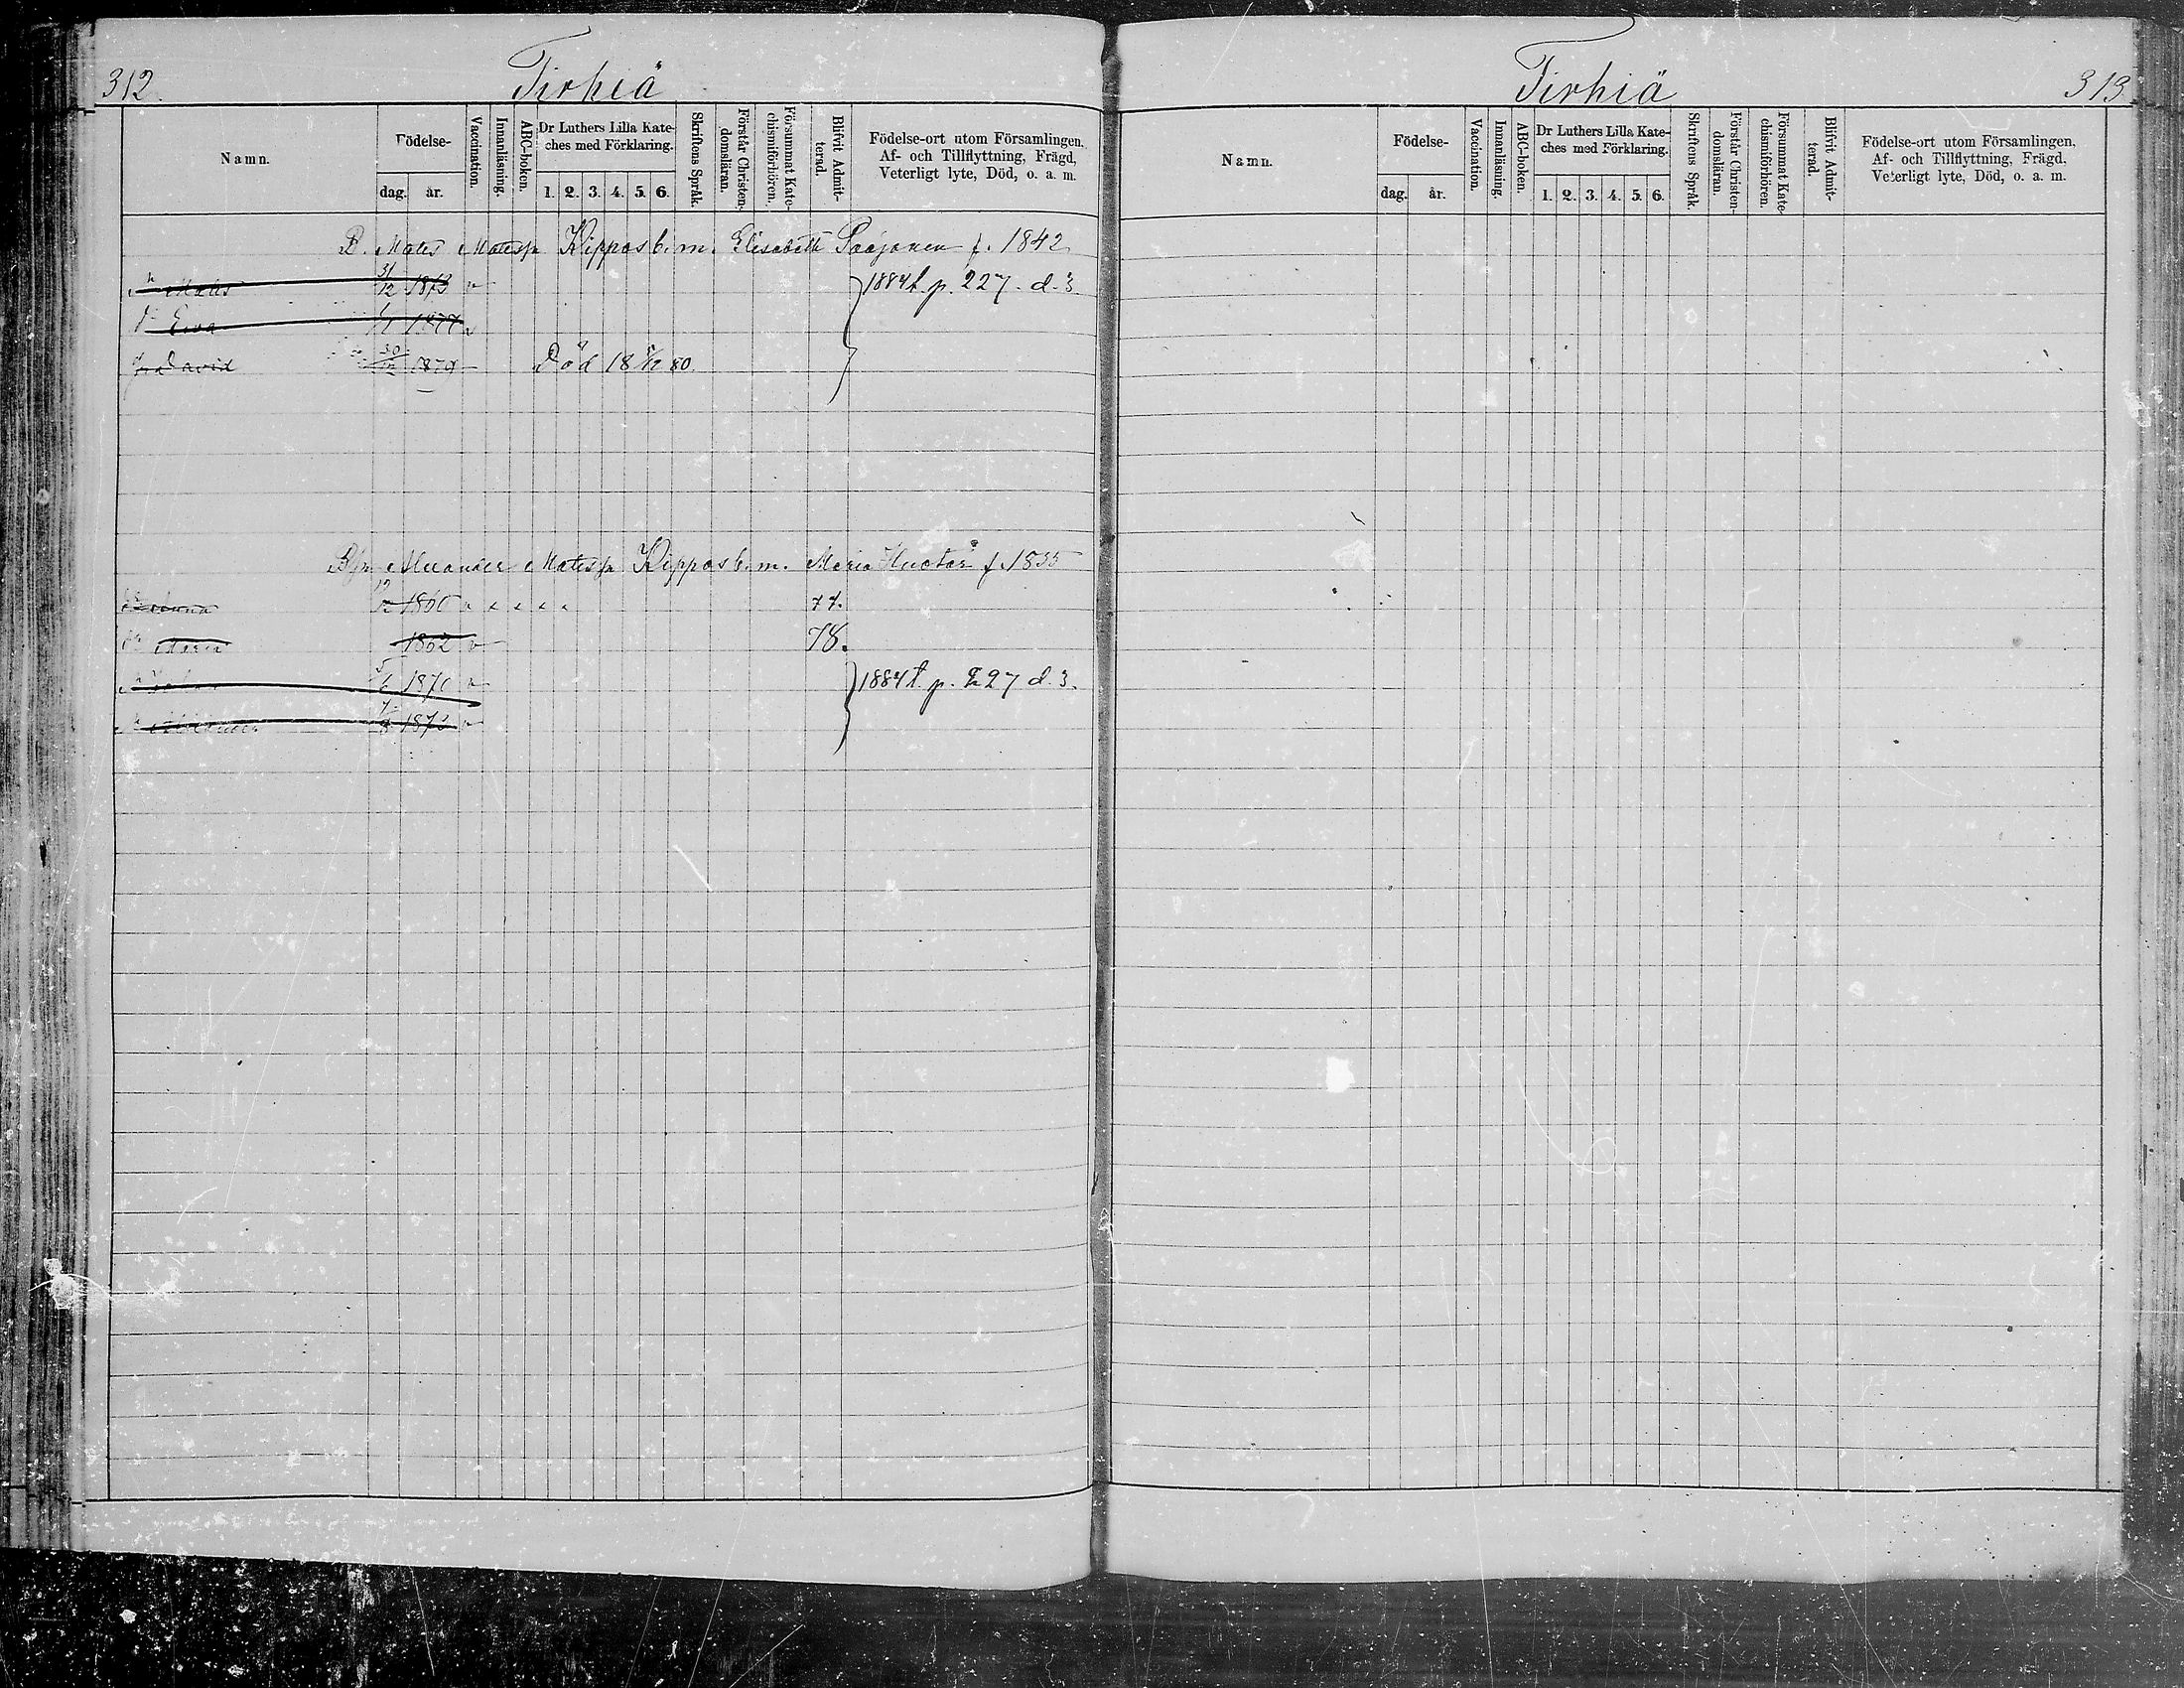 312. Tirhiä
Namn. Födelse- dag. år. Vaccination. Innanläsning. ABC-boken. Dr Luthers Lilla Kateches med Förklaring. 1. 2. 3. 4. 5. 6. Skriftens Språk. Förstår Christendomsläran. Försummat Katechismiförhören. Blifvit Admitterad. Födelse-ort utom Församlingen, Af- och Tillflyttning, Frägd, Veterligt lyte, Död, o. a. m.
B. Mats Matsfn Kippas b. m. Elisabeth Paajanen f. 1842
Mats 31/12 1873 v 1884 t. p. 227. d. 3.
Eva 1877 v
David 30 1879 Död 18 /12 80.
Alexander Matsfn Kippas b. m. Maria Huotar f. 1835
1860 v 77.
Maria 1862 v 78.
1870 v 1884 t. p. 227 d. 3.
1873 v
Tirhiä 313.
Namn. Födelse- dag. år. Vaccination. Innanläsning. ABC-boken. Dr Luthers Lilla Kateches med Förklaring. 1. 2. 3. 4. 5. 6. Skriftens Språk. Förstår Christendomsläran. Försummat Katechismiförhören. Blifvit Admitterad. Födelse-ort utom Församlingen, Af- och Tillflyttning, Frägd, Veterligt lyte, Död, o. a. m.